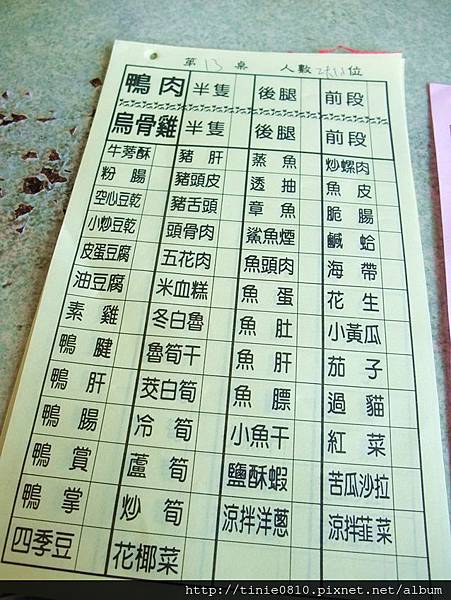 第 13 桌 人數 位
鴨肉 半隻 後腿 前段
烏骨雞 半隻 後腿 前段
牛蒡酥 豬肝 蒸魚 炒螺肉
粉腸 豬頭皮 透抽 魚皮
空心豆乾 豬舌頭 章魚 脆腸
小炒豆乾 頭骨肉 鯊魚煙 鹹蛤
皮蛋豆腐 五花肉 魚頭肉 海帶
油豆腐 米血糕 魚蛋 花生
素雞 冬白魯 魚肚 小黃瓜
鴨腱 魯筍干 魚肝 茄子
鴨肝 茭白筍 魚膘 過貓
鴨腸 冷筍 小魚干 紅菜
鴨賞 蘆筍 鹽酥蝦 苦瓜沙拉
鴨掌 炒筍 涼拌洋蔥 涼拌韮菜
四季豆 花椰菜
http://tinie0810.pixnet.net/album